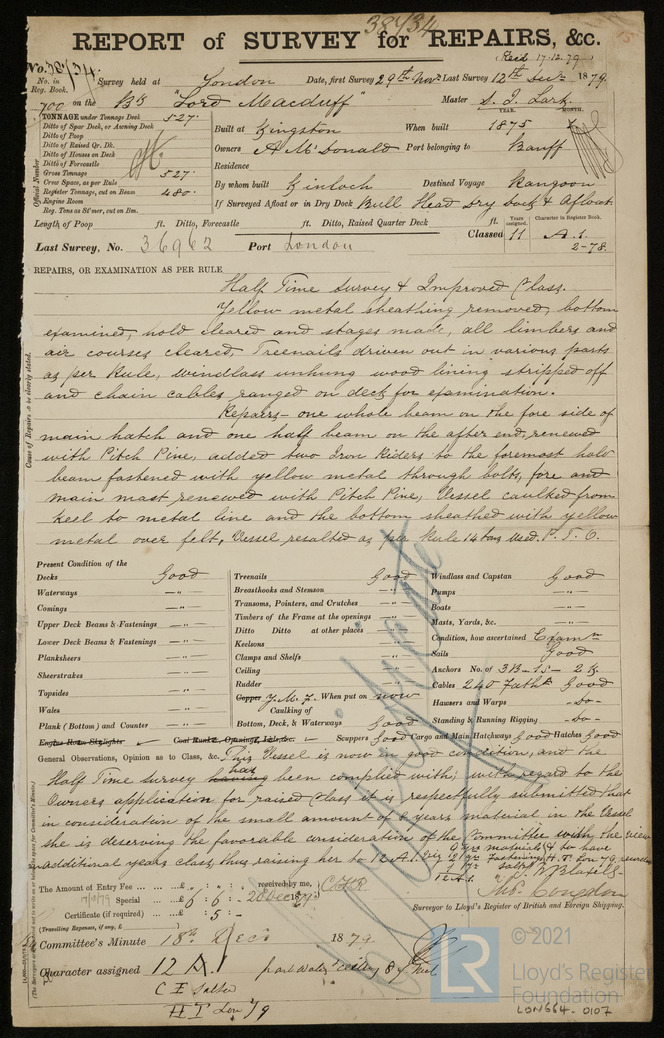 38734
REPORT of SURVEY for REPAIRS, &c.
Recd 17.12.79
No. 38734.
No. in Reg. Book.
Survey held at London Date, first Survey 29th Novr Last Survey 12th Decr 1879.
700 on the Bk "Lord Macduff" Master S. J. Lark
TONNAGE under Tonnage Deck 527.
Ditto of Spar Deck, or Awning Deck
Ditto of Poop
Ditto of Raised Qr. Dk.
Ditto of Houses on Deck
Ditto of Forecastle
Gross Tonnage 527.
Crew Space, as per Rule
Register Tonnage, cut on Beam 480.
Engine Room
Reg. Tons as St'mer, cut on Bm.
Official Number
YEAR. MONTH.
Built at Kingston When built 1875
Owners A McDonald Port belonging to Banff
Residence
By whom built Kinloch Destined Voyage Rangoon
If Surveyed Afloat or in Dry Dock Bull Head Dry Dock & Afloat
Length of Poop ft. Ditto, Forecastle ft. Ditto, Raised Quarter Deck ft.
Years assigned. Character in Register Book.
Last Survey, No. 36962 Port London Classed 11 A.1.
2-78.
REPAIRS, OR EXAMINATION AS PER RULE
Cause of Repairs to be clearly stated.
Half Time Survey & Improved Class.
Yellow metal sheathing removed, bottom
examined, hold cleared and stages made, all limbers and
air courses cleared, Treenails driven out in various parts
as per Rule, windlass unhung wood lining stripped off
and chain cables ranged on deck for examination.
Repairs - one whole beam on the fore side of
main hatch and one half beam on the after end, renewed
with Pitch Pine, added two Iron Riders to the foremost hold
beam fastened with yellow metal through bolts, fore and
main mast renewed with Pitch Pine, Vessel caulked from
keel to metal line and the bottom sheathed with yellow
metal over felt, Vessel resalted as per Rule 14 tons used. P.T.O.
Present Condition of the
Decks Good
Waterways -"-
Comings -"-
Upper Deck Beams & Fastenings -"-
Lower Deck Beams & Fastenings -"-
Planksheers -"-
Sheerstrakes -"-
Topsides -"-
Wales -"-
Plank (Bottom) and Counter -"-
Engine Room Skylights
Treenails Good
Breasthooks and Stemson -"-
Transoms, Pointers, and Crutches -"-
Timbers of the Frame at the openings -"-
Ditto Ditto at other places -"-
Keelsons -"-
Clamps and Shelfs -"-
Ceiling -"-
Rudder -"-
Copper Y.M.F. When put on now
Caulking of
Bottom, Deck, & Waterways Good
Coal Bunk'r. Openings, Lids, &c.
Windlass and Capstan Good
Pumps -"-
Boats -"-
Masts, Yards, &c. -"-
Condition, how ascertained Examn
Sails Good
Anchors No. of 3B-1S-2K
Cables 240 Faths Good
Hawsers and Warps -do-
Standing & Running Rigging -do-
Scuppers Good Cargo and Main Hatchways Good Hatches Good
General Observations, Opinion as to Class, &c. This Vessel is now in good condition, and the
Half Time survey having has been complied with; with regard to the
Owners application for raised class it is respectfully submitted that
in consideration of the small amount of 8 years material in the Vessel
she is deserving the favorable consideration of the Committee with the view
additional years class, thus raising her to 12 A.1.
The Amount of Entry Fee ... £ : : received by me,
Special ... £ 6 : 6 : 20 Dec 1879
Certificate (if required) ... £ : 5 :
(Travelling Expenses, if any, £ )
Thos. Congdon
Surveyor to Lloyd's Register of British and Foreign Shipping.
Committee's Minute 18th Decr 1879.
Character assigned 12 A.1
C E Salted
HT Lon 79
© 2021
LR
Lloyd's Register
Foundation
LON664-0107